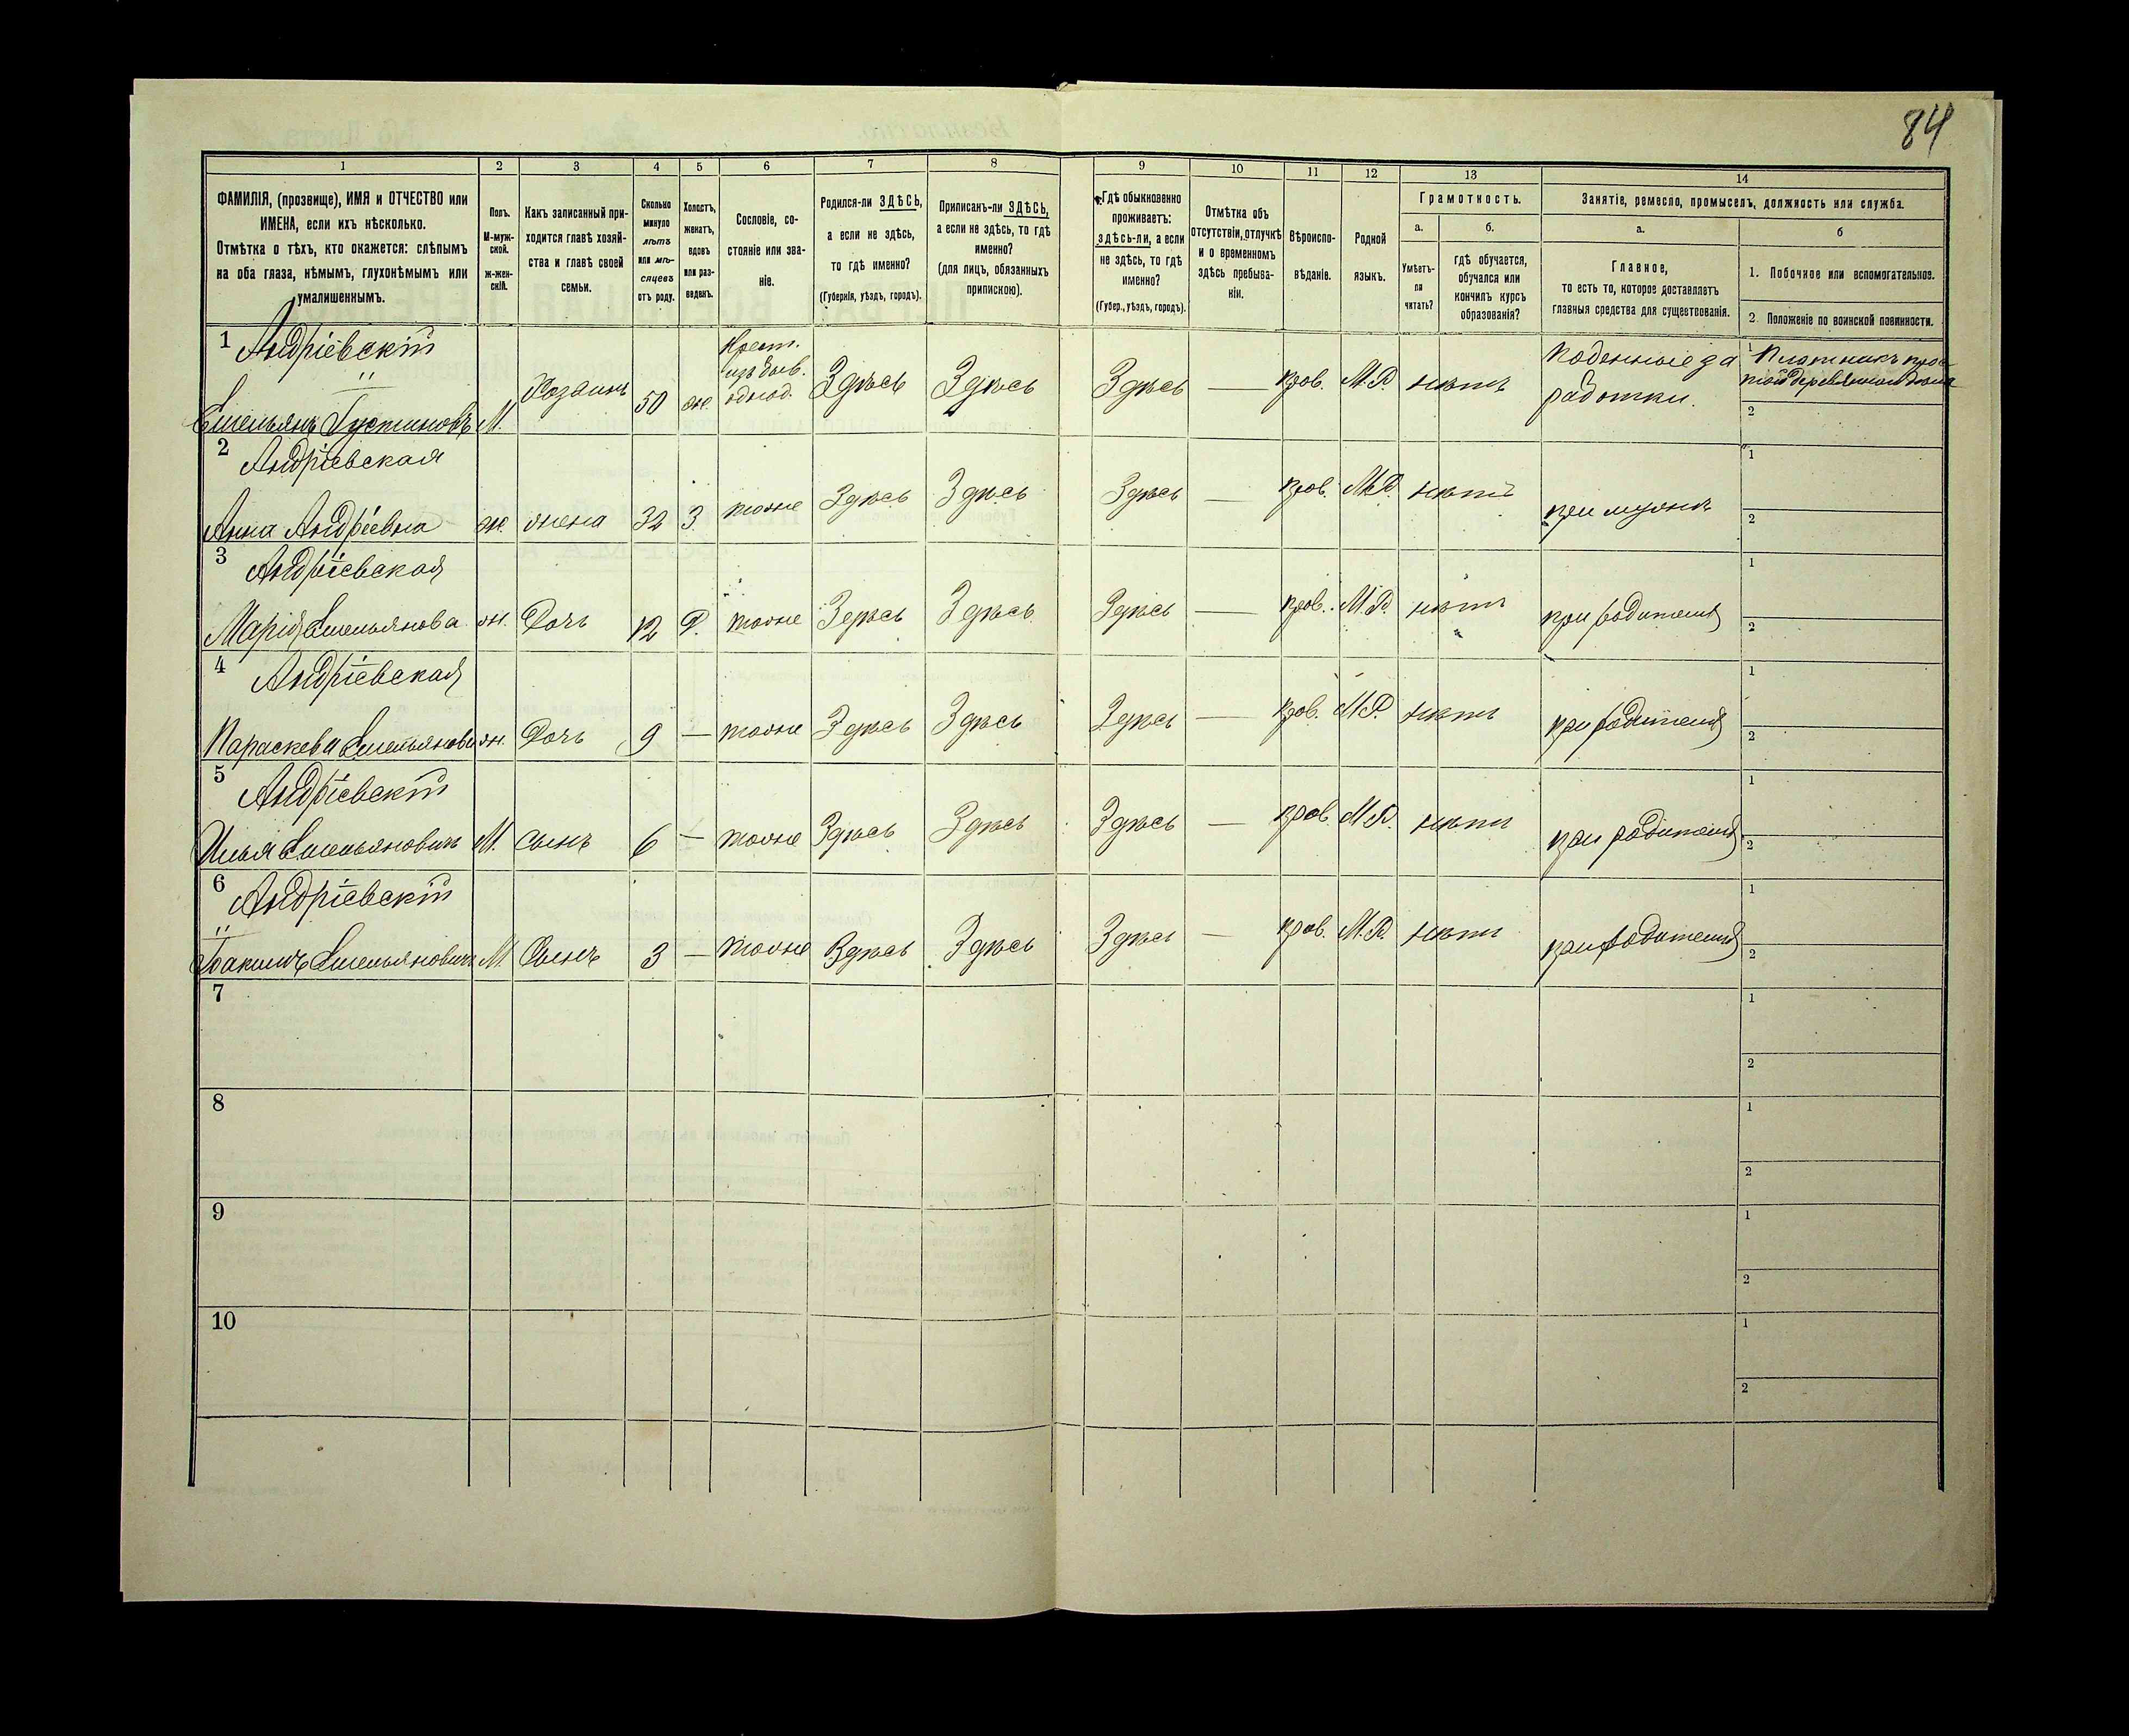 84
1 2 3 4 5 6 7 8 9 10 11 12 13 14
ФАМИЛІЯ, (прозвище), ИМЯ и ОТЧЕСТВО или
ИМЕНА, если ихъ нѣсколько.
Отмѣтка о тѣхъ, кто окажется: слѣпымъ
на оба глаза, нѣмымъ, глухонѣмымъ или
умалишеннымъ.
Полъ.
М-муж-
ской.
ж-жен-
скій.
Какъ записанный при-
ходится главѣ хозяй-
ства и главѣ своей
семьи.
Сколько
минуло
лѣтъ
или мѣ-
сяцевъ
отъ роду.
Холостъ,
женатъ,
вдовъ
или раз-
веденъ.
Сословіе, со-
стояніе или зва-
ніе.
Родился-ли ЗДѢСЬ,
а если не здѣсь,
то гдѣ именно?
(Губернія, уѣздъ, городъ).
Приписанъ-ли ЗДѢСЬ,
а если не здѣсь, то гдѣ
именно?
(для лицъ, обязанныхъ
припискою).
Гдѣ обыкновенно
проживаетъ:
здѣсь-ли, а если
не здѣсь, то гдѣ
именно?
(Губер., уѣздъ, городъ).
Отмѣтка объ
отсутствіи, отлучкѣ
и о временномъ
здѣсь пребыва-
ніи.
Вѣроиспо-
вѣданіе.
Родной
языкъ.
Грамотность.
а.
Умѣетъ-
ли
читать?
б.
гдѣ обучается,
обучался или
кончилъ курсъ
образованія?
Занятіе, ремесло, промыселъ, должность или служба.
а.
Главное,
то есть то, которое доставляетъ
главныя средства для существованія.
б
1. Побочное или вспомогательное.
2. Положеніе по воинской повинности.
1 Андріевскій
Емельянъ Іустиновъ М. Хозяинъ 50 ж. Крест.
изъ быв.
однод. Здѣсь Здѣсь Здѣсь — прав. М.Р. нѣтъ Поденные за
работки. 1 Плотникъ
2
2 Андріевская
Анна Андріевна ж. жена 32 З. тоже Здѣсь Здѣсь Здѣсь — прав. М.Р. нѣтъ при мужѣ 1
2
3 Андріевская
Марія Емельянова ж. Дочь 12 Д. тоже Здѣсь Здѣсь Здѣсь — прав. М.Р. нѣтъ при родителѣ 1
2
4 Андріевская
Параскева Емельянова ж. Дочь 9 — тоже Здѣсь Здѣсь Здѣсь — прав. М.Р. нѣтъ при родителѣ 1
2
5 Андріевскій
Илья Емельяновичъ М. сынъ 6 — тоже Здѣсь Здѣсь Здѣсь — прав. М.Р. нѣтъ при родителѣ 1
2
6 Андріевскій
Іоакимъ Емельяновичъ М. Сынъ 3 — тоже Здѣсь Здѣсь Здѣсь — прав. М.Р. нѣтъ при родителѣ 1
2
7 1
2
8 1
2
9 1
2
10 1
2